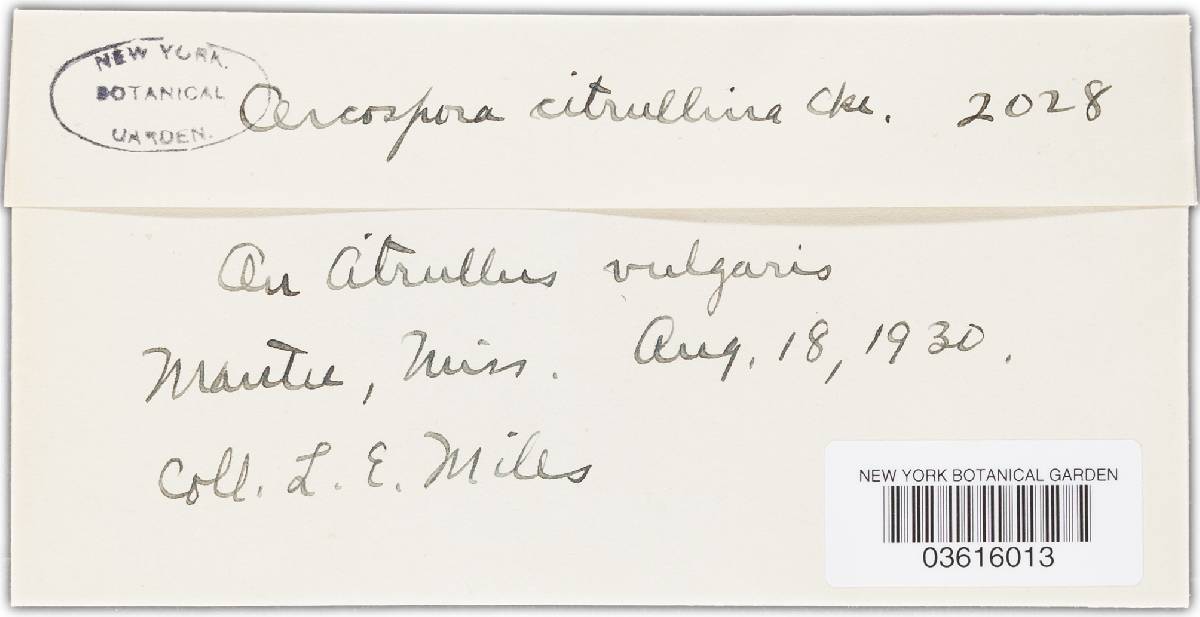 NEW YORK
BOTANICAL
GARDEN.
Cercospora citrullina Cke. 2028
On Citrullus vulgaris
Mantee, Miss. Aug. 18, 1930.
Coll. L. E. Miles
NEW YORK BOTANICAL GARDEN
03616013